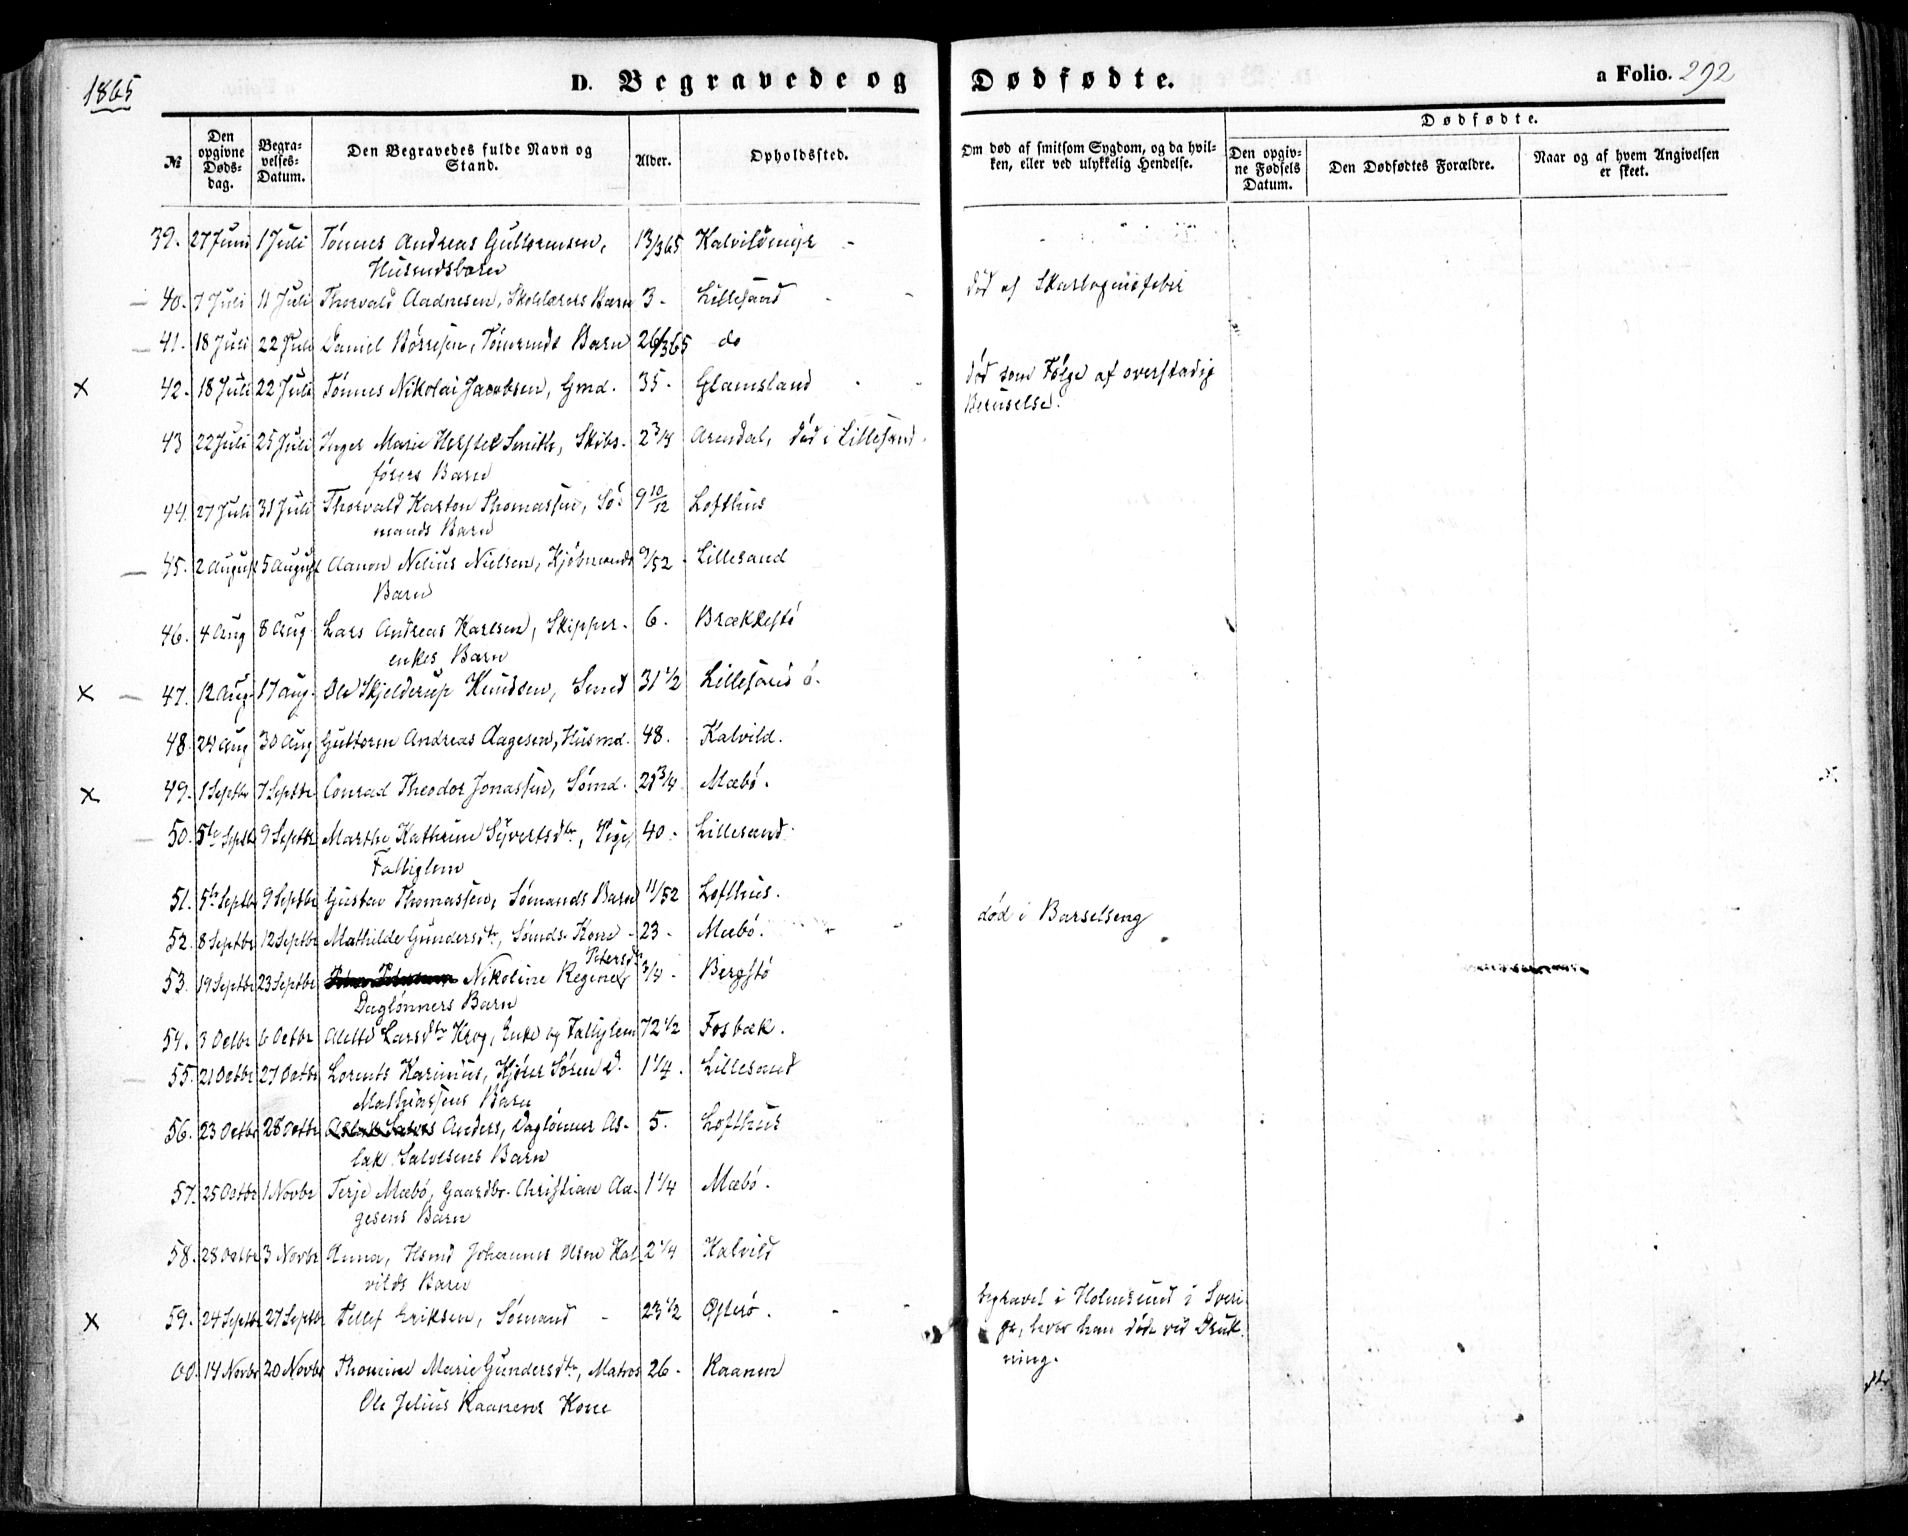 1865
D. Begravede og Dødfødte.
a Folio. 292
№
Den opgivne Døds-dag.
Begra-velses-Datum.
Den Begravedes fulde Navn og Stand.
Alder.
Opholdssted.
Om død af smitsom Sygdom, og da hvil-ken, eller ved ulykkelig Hendelse.
Dødfødte.
Den opgiv-ne Fødsels Datum.
Den Dødfødtes Forældre.
Naar og af hvem Angivelsen er skeet.
39. 27 Juni 1 Juli Tønnes Andreas Guttormsen, 13/365 Kalvildmyr
Husmdsbarn
40. 7 Juli 11 Juli Thorvald Aadnesen, Skolelærers Barn 3 - Lillesand død af Skarlagensfeber
41. 18 Juli 22 Juli Daniel Børresen, Tømmds Barn 26/365 do
42. 18 Juli 22 Juli Tønnes Nikolai Jacobsen, Gmd. 35 - Glamsland død som Følge af overstadig
Beruselse.
43 22 Juli 25 Juli Inger Marie Smith, Skibs- 2 3/4 Arendal, død i Lillesand.
førers Barn
44. 27 Juli 31 Juli Thorvald Karsten Thomassen, Sø- 9 10/12 Lofthus
mands Barn
45. 2 August 5 August Aanon Nelius Nielsen, Kjøbmands 9/52 Lillesand
Barn
46. 4 Aug 8 Aug Lars Andreas Karlsen, Skipper- 6. Brækkestø
enkes Barn
47. 12 Aug 17 Aug. Ole Skjelderup Knudsen, Smed 31 1/2 Lillesand
48. 24 Aug 30 Aug Guttorm Andreas Aagesen, Husmd. 48. Kalvild.
49. 1 Septbr 7 Septbr Conrad Theodor Jonassen, Sømd. 21 3/4 Mæbø.
50. 5te Septbr 9 Septbr Marthe Kathrine Syvertsdtr, Pige, 40 - Lillesand
Fattiglem
51. 5te Septbr 9 Septbr Gustav Thomassen, Sømands Barn 11/52 Lofthus.
52. 8 Septbr 12 Septbr Mathilde Gundersdtr, Sømds. Kone - 23 - Mæbø. død i Barselseng
Petersdtr
53. 19 Septbr 23 Septbr Nikoline Regine 3/4 - Bergstø
Daglønners Barn
54. 3 Octbr 6 Octbr Alette Larsdtr Krog, Enke og Fattiglem 72 1/2 Fosbæk.
55. 21 Octbr 27 Octbr Lorents Karinius, Søren 1 1/4. Lillesand
Mathiassens Barn
56. 23 Octbr 28 Octbr Anders, Daglønner As- 5. Lofthus
lak Salvesens Barn
57. 25 Octbr 1 Novbr Terje Mæbø, Gaardbr. Christian Aa- 1 1/4 Mæbø.
gesens Barn
58. 28 Octbr 3 Novbr Anna, Hsmd Johannes Olsen Kal- 2 1/4 Kalvild
vilds Barn
59. 24 Septbr 27 Septbr Tellef Eriksen, Sømand 23 1/2 begravet i Holmsund i Sveri-
ge, hvor han døde ved Druk-
ning.
60. 14 Novbr 20 Novbr Thomine Marie Gundersdtr, Matros 26 - Kaanen
Ole Jelius Kaanens Kone